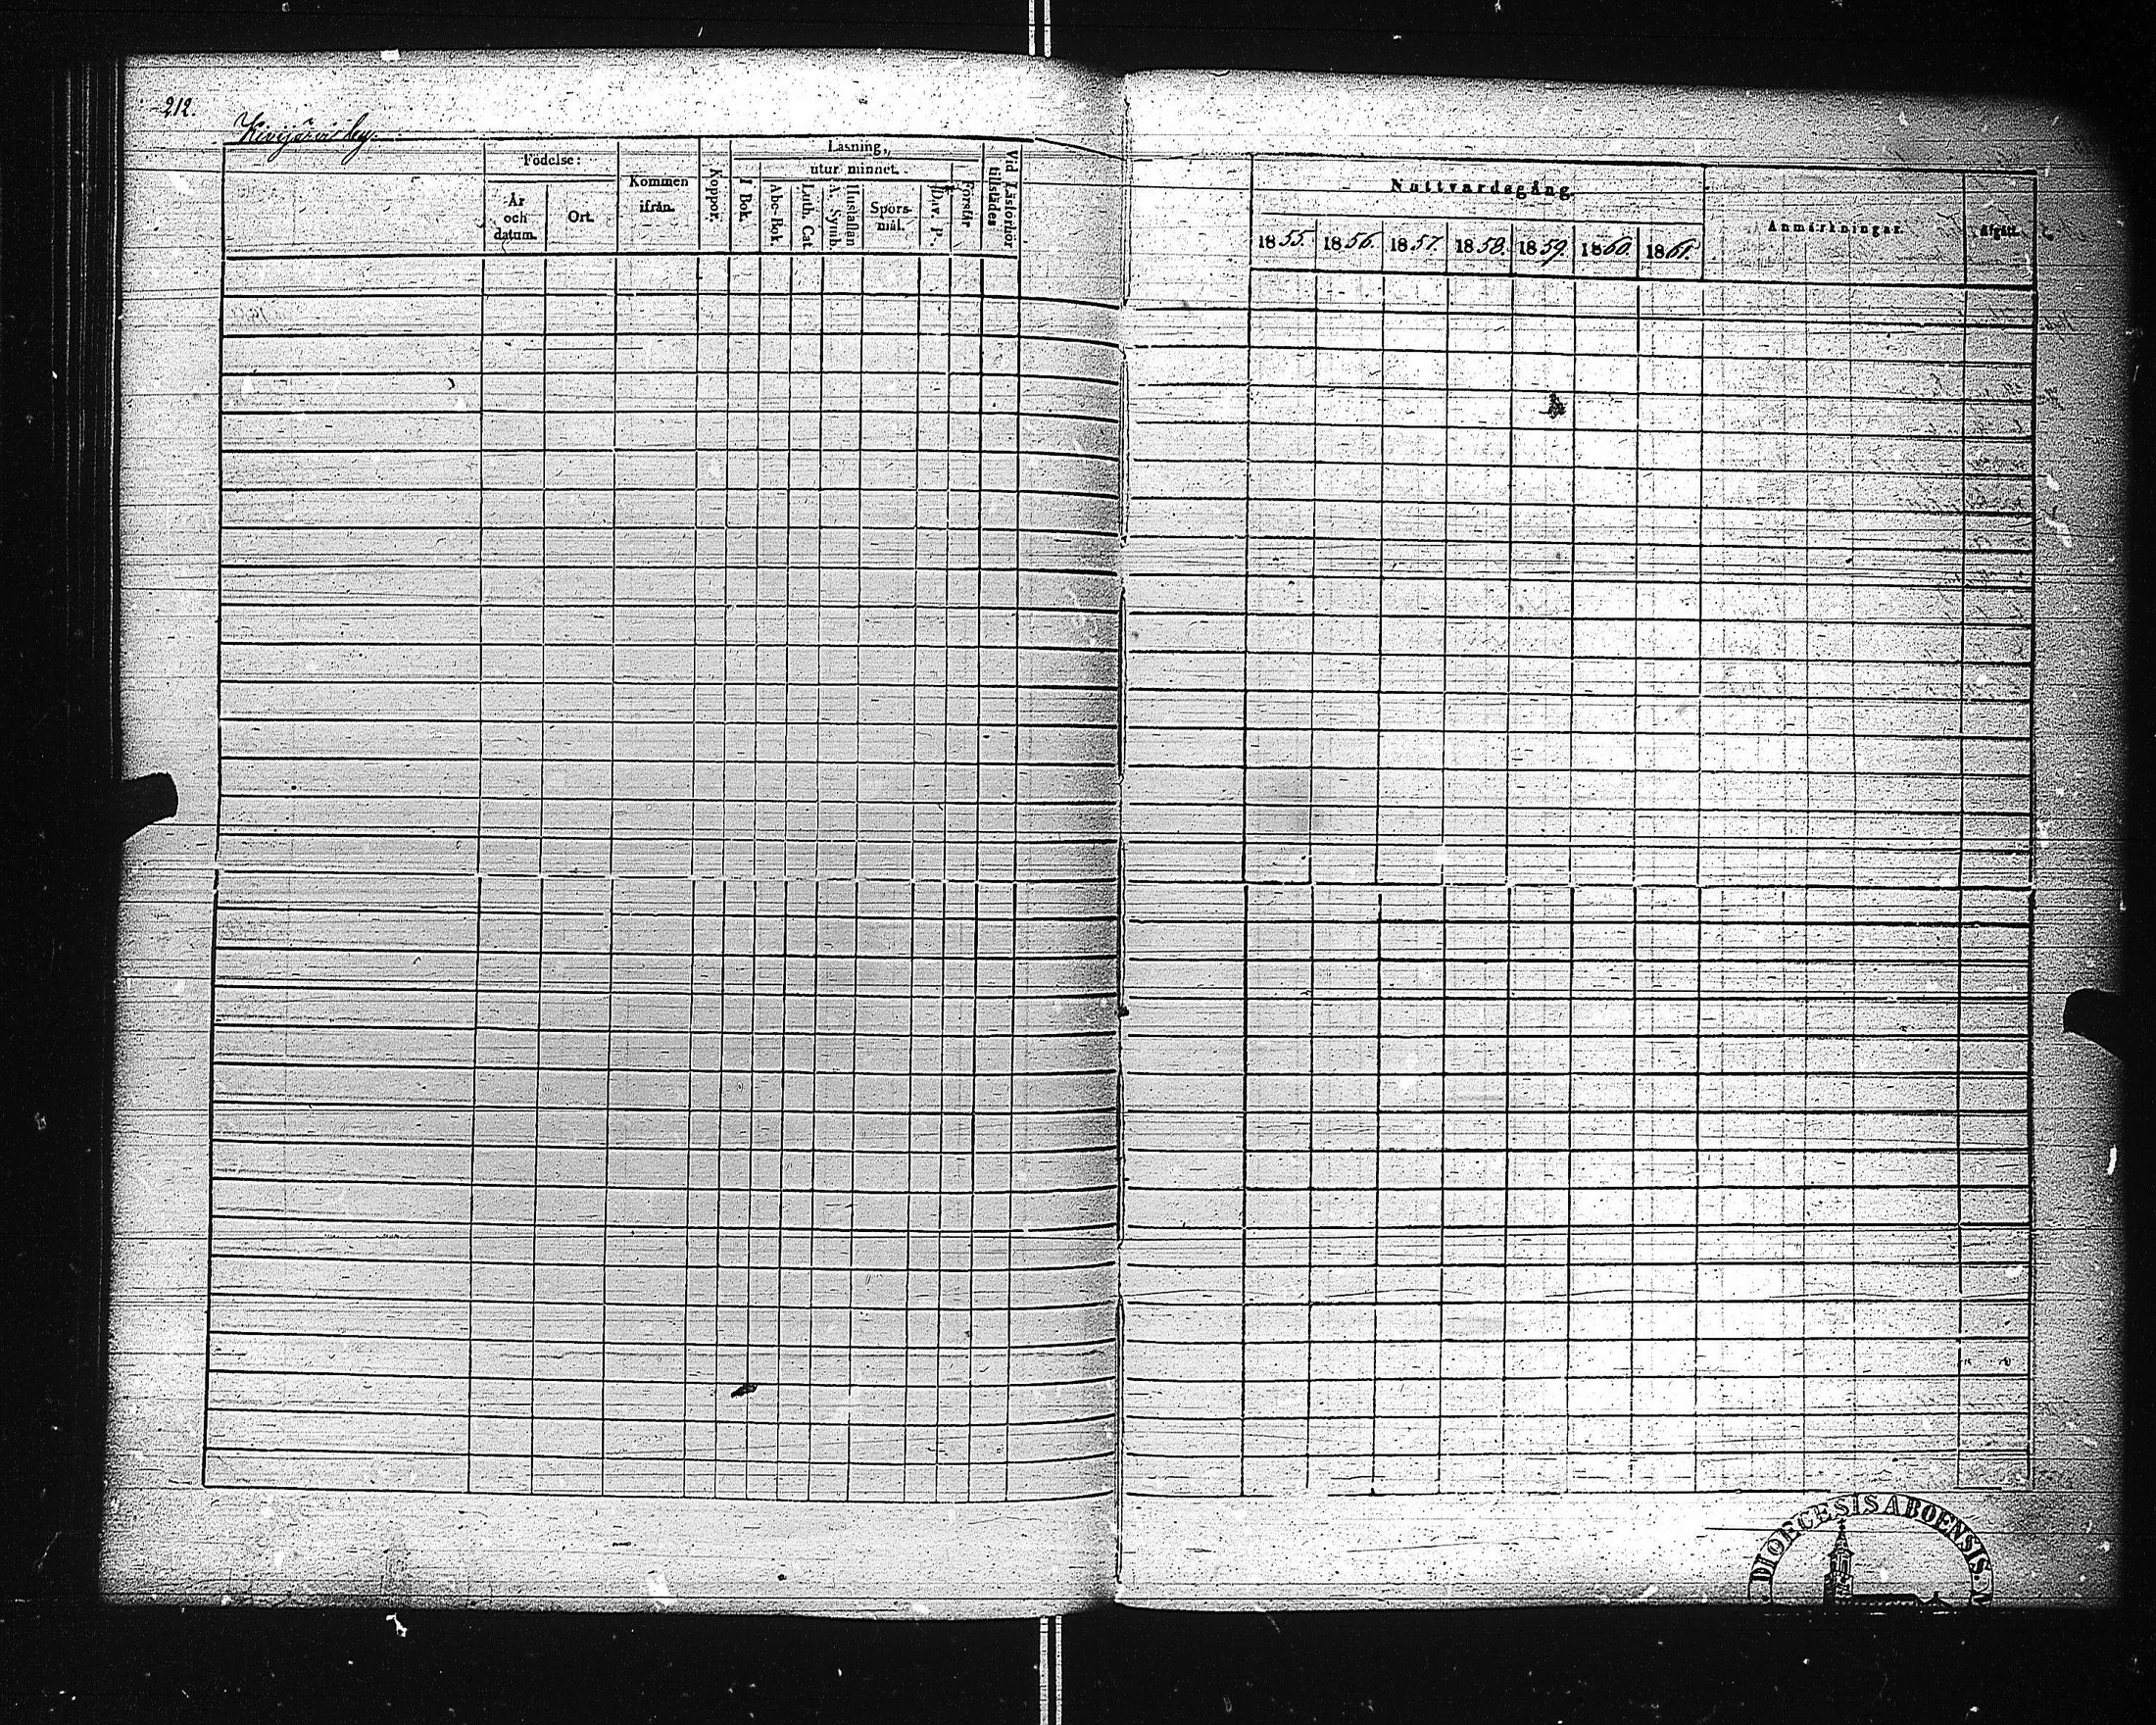 212.
Kivijärvi by.
Födelse:
År och datum.
Ort.
Kommen ifrån.
Koppor.
Läsning,
I Bok.
utur minnet.
Abc-Bok.
Luth. Cat.
A. Symb.
Hustaflan
Spörs-mål.
Dav. P.
Förstår
Vid Läsförhör tillstädes
Nattvardsgång.
1855.
1856.
1857.
1858.
1859.
1860.
1861.
Anmärkningar.
Afgått.
DIOECESIS ABOENSIS.